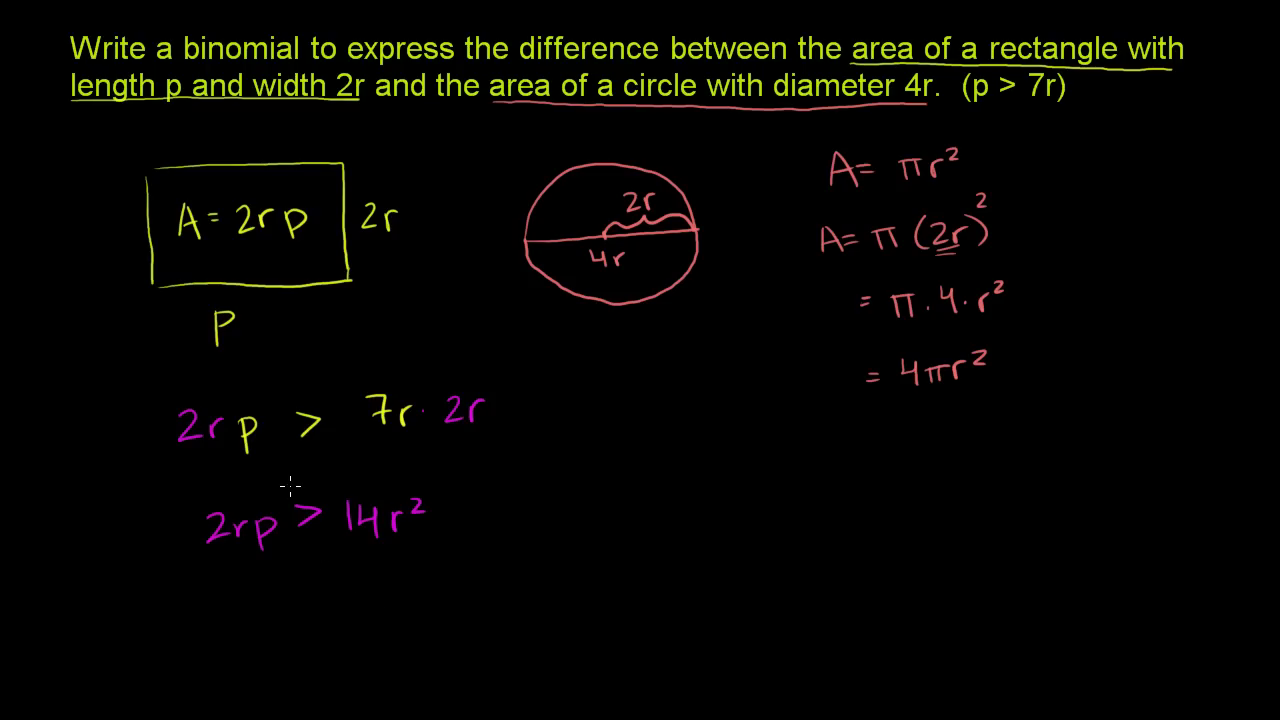 Write a binomial to express the difference between the area of a rectangle with
length p and width 2r and the area of a circle with diameter 4r. (p > 7r)
A = 2rp
2r
p
2r
4r
A = πr²
A = π (2r)²
= π · 4 · r²
= 4πr²
2rp > 7r · 2r
2rp > 14r²